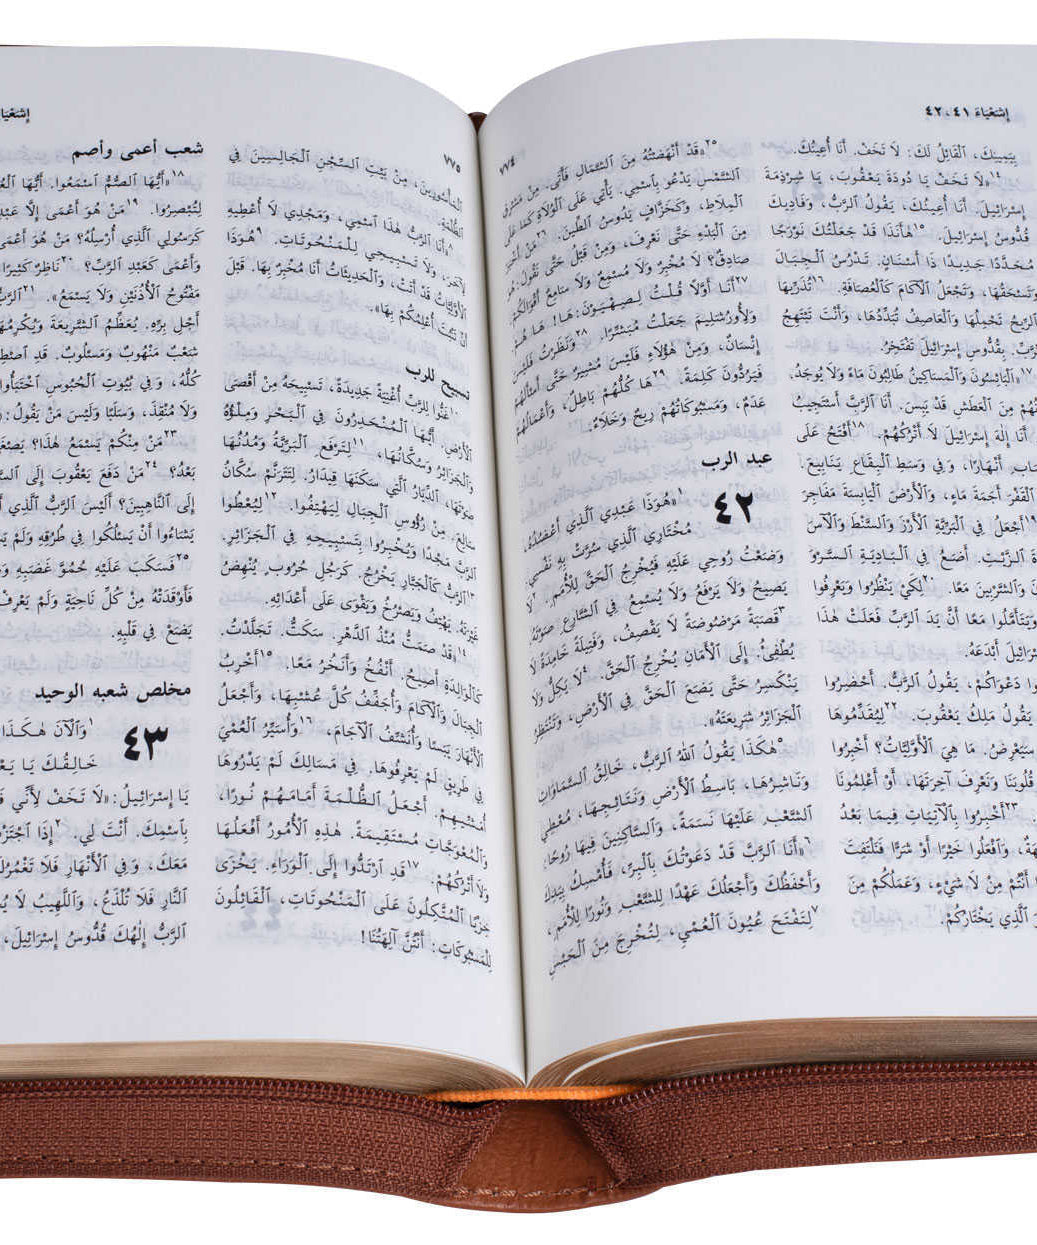 إشَعْيَاءَ ٤١، ٤٢
٧٧٤
يَمِينِكَ، ٱلْقَائِلُ لَكَ: لَا تَخَفْ. أَنَا أُعِينُكَ.
١٤«لَا تَخَفْ يَا دُودَةَ يَعْقُوبَ، يَا شِرْذِمَةَ
إِسْرَائِيلَ. أَنَا أُعِينُكَ، يَقُولُ ٱلرَّبُّ، وَفَادِيكَ
قُدُّوسُ إِسْرَائِيلَ. ١٥هَأَنَذَا قَدْ جَعَلْتُكَ نَوْرَجًا
مُحَدَّدًا جَدِيدًا ذَا أَسْنَانٍ. تَدْرُسُ ٱلْجِبَالَ
وَتَسْحَقُهَا، وَتَجْعَلُ ٱلْآكَامَ كَٱلْعُصَافَةِ. ١٦تُذَرِّيهَا
فَٱلرِّيحُ تَحْمِلُهَا وَٱلْعَاصِفُ تُبَدِّدُهَا، وَأَنْتَ تَبْتَهِجُ
بِٱلرَّبِّ. بِقُدُّوسِ إِسْرَائِيلَ تَفْتَخِرُ.
١٧«ٱلْبَائِسُونَ وَٱلْمَسَاكِينُ طَالِبُونَ مَاءً وَلَا يُوجَدُ.
مِنَ ٱلْعَطَشِ قَدْ يَبِسَ. أَنَا ٱلرَّبُّ أَسْتَجِيبُ
أَنَا إِلَهَ إِسْرَائِيلَ لَا أَتْرُكُهُمْ. ١٨أَفْتَحُ عَلَى
أَنْهَارًا، وَفِي وَسَطِ ٱلْبِقَاعِ يَنَابِيعَ.
ٱلْقَفْرَ أَجَمَةَ مَاءٍ، وَٱلْأَرْضَ ٱلْيَابِسَةَ مَفَاجِرَ
١٩أَجْعَلُ فِي ٱلْبَرِّيَّةِ ٱلْأَرْزَ وَٱلسَّنْطَ وَٱلْآسَ
ٱلزَّيْتِ. أَضَعُ فِي ٱلْبَادِيَةِ ٱلسَّرْوَ
وَٱلشَّرْبِينَ مَعًا. ٢٠لِكَيْ يَنْظُرُوا وَيَعْرِفُوا
وَيَتَأَمَّلُوا مَعًا أَنَّ يَدَ ٱلرَّبِّ فَعَلَتْ هَذَا
إِسْرَائِيلَ أَبْدَعَهُ.
دَعْوَاكُمْ، يَقُولُ ٱلرَّبُّ. أَحْضِرُوا
يَقُولُ مَلِكُ يَعْقُوبَ. ٢٢لِيُقَدِّمُوهَا
سَيَعْرِضُ. مَا هِيَ ٱلْأَوَّلِيَّاتُ؟ أَخْبِرُوا
قُلُوبَنَا وَنَعْرِفَ آخِرَتَهَا، أَوْ أَعْلِمُونَا
٢٣أَخْبِرُوا بِٱلْآتِيَاتِ فِيمَا بَعْدُ
وَٱفْعَلُوا خَيْرًا أَوْ شَرًّا فَنَلْتَفِتَ
أَنْتُمْ مِنْ لَا شَيْءٍ، وَعَمَلُكُمْ مِنَ
ٱلَّذِي يَخْتَارُكُمْ.
٢٥«قَدْ أَنْهَضْتُهُ مِنَ ٱلشَّمَالِ فَأَتَى. مِنْ مَشْرِقِ
ٱلشَّمْسِ يَدْعُو بِٱسْمِي. يَأْتِي عَلَى ٱلْوُلَاةِ كَمَا عَلَى
ٱلْمِلَاطِ، وَكَخَزَّافٍ يَدُوسُ ٱلطِّينَ. ٢٦مَنْ أَخْبَرَ
مِنَ ٱلْبَدْءِ حَتَّى نَعْرِفَ، وَمِنْ قَبْلُ حَتَّى نَقُولَ: هُوَ
صَادِقٌ؟ لَا مُخْبِرٌ وَلَا مُسْمِعٌ وَلَا سَامِعٌ أَقْوَالَكُمْ.
٢٧أَنَا أَوَّلًا قُلْتُ لِصِهْيَوْنَ: هَا! هَا هُمْ.
وَلِأُورُشَلِيمَ جَعَلْتُ مُبَشِّرًا. ٢٨وَنَظَرْتُ فَلَيْسَ
إِنْسَانٌ، وَمِنْ هَؤُلَاءِ فَلَيْسَ مُشِيرٌ حَتَّى أَسْأَلَهُمْ
فَيَرُدُّونَ كَلِمَةً. ٢٩هَا كُلُّهُمْ بَاطِلٌ، وَأَعْمَالُهُمْ
عَدَمٌ، وَمَسْبُوكَاتُهُمْ رِيحٌ وَخَلَاءٌ.
عبد الرب
٤٢
١«هُوَذَا عَبْدِي ٱلَّذِي أَعْضُدُهُ،
مُخْتَارِي ٱلَّذِي سُرَّتْ بِهِ نَفْسِي.
وَضَعْتُ رُوحِي عَلَيْهِ فَيُخْرِجُ ٱلْحَقَّ لِلْأُمَمِ. ٢لَا
يَصِيحُ وَلَا يَرْفَعُ وَلَا يُسْمِعُ فِي ٱلشَّارِعِ صَوْتَهُ
٣قَصَبَةً مَرْضُوضَةً لَا يَقْصِفُ، وَفَتِيلَةً خَامِدَةً لَا
يُطْفِئُ. إِلَى ٱلْأَمَانِ يُخْرِجُ ٱلْحَقَّ. ٤لَا يَكِلُّ وَلَا
يَنْكَسِرُ حَتَّى يَضَعَ ٱلْحَقَّ فِي ٱلْأَرْضِ، وَتَنْتَظِرُ
ٱلْجَزَائِرُ شَرِيعَتَهُ».
٥هَكَذَا يَقُولُ ٱللهُ ٱلرَّبُّ، خَالِقُ ٱلسَّمَاوَاتِ
وَنَاشِرُهَا، بَاسِطُ ٱلْأَرْضِ وَنَتَائِجِهَا، مُعْطِي
ٱلشَّعْبِ عَلَيْهَا نَسَمَةً، وَٱلسَّاكِنِينَ فِيهَا رُوحًا:
٦«أَنَا ٱلرَّبَّ قَدْ دَعَوْتُكَ بِٱلْبِرِّ، فَأُمْسِكُ بِيَدِكَ
وَأَحْفَظُكَ وَأَجْعَلُكَ عَهْدًا لِلشَّعْبِ وَنُورًا لِلْأُمَمِ،
٧لِتَفْتَحَ عُيُونَ ٱلْعُمْيِ، لِتُخْرِجَ مِنَ ٱلْحَبْسِ
إشَعْيَا
٧٧٥
ٱلْمَأْسُورِينَ، مِنْ بَيْتِ ٱلسِّجْنِ ٱلْجَالِسِينَ فِي
ٱلظُّلْمَةِ.
٨«أَنَا ٱلرَّبُّ هَذَا ٱسْمِي، وَمَجْدِي لَا أُعْطِيهِ
لِآخَرَ، وَلَا تَسْبِيحِي لِلْمَنْحُوتَاتِ. ٩هُوَذَا
ٱلْأَوَّلِيَّاتُ قَدْ أَتَتْ، وَٱلْحَدِيثَاتُ أَنَا مُخْبِرٌ بِهَا. قَبْلَ
أَنْ تَنْبُتَ أُعْلِمُكُمْ بِهَا».
تسبيح للرب
١٠غَنُّوا لِلرَّبِّ أُغْنِيَةً جَدِيدَةً، تَسْبِيحَهُ مِنْ أَقْصَى
ٱلْأَرْضِ. أَيُّهَا ٱلْمُنْحَدِرُونَ فِي ٱلْبَحْرِ وَمِلْؤُهُ
وَٱلْجَزَائِرُ وَسُكَّانُهَا، ١١لِتَرْفَعِ ٱلْبَرِّيَّةُ وَمُدُنُهَا
صَوْتَهَا، ٱلدِّيَارُ ٱلَّتِي سَكَنَهَا قِيدَارُ. لِتَتَرَنَّمْ سُكَّانُ
سَالِعَ. مِنْ رُؤُوسِ ٱلْجِبَالِ لِيَهْتِفُوا. ١٢لِيُعْطُوا
ٱلرَّبَّ مَجْدًا وَيُخْبِرُوا بِتَسْبِيحِهِ فِي ٱلْجَزَائِرِ.
١٣ٱلرَّبُّ كَٱلْجَبَّارِ يَخْرُجُ. كَرَجُلِ حُرُوبٍ يُنْهِضُ
غَيْرَتَهُ. يَهْتِفُ وَيَصْرُخُ وَيَقْوَى عَلَى أَعْدَائِهِ.
١٤«قَدْ صَمَتُّ مُنْذُ ٱلدَّهْرِ. سَكَتُّ. تَجَلَّدْتُ.
كَٱلْوَالِدَةِ أَصِيحُ. أَنْفُخُ وَأَنْخُرُ مَعًا. ١٥أَخْرِبُ
ٱلْجِبَالَ وَٱلْآكَامَ وَأُجَفِّفُ كُلَّ عُشْبِهَا، وَأَجْعَلُ
ٱلْأَنْهَارَ يَبَسًا وَأُنَشِّفُ ٱلْآجَامَ، ١٦وَأُسَيِّرُ ٱلْعُمْيَ
فِي طَرِيقٍ لَمْ يَعْرِفُوهَا. فِي مَسَالِكَ لَمْ يَدْرُوهَا
أُمَشِّيهِمْ. أَجْعَلُ ٱلظُّلْمَةَ أَمَامَهُمْ نُورًا،
وَٱلْمُعْوَجَّاتِ مُسْتَقِيمَةً. هَذِهِ ٱلْأُمُورُ أَفْعَلُهَا
وَلَا أَتْرُكُهُمْ. ١٧قَدِ ٱرْتَدُّوا إِلَى ٱلْوَرَاءِ. يَخْزَى
خِزْيًا ٱلْمُتَّكِلُونَ عَلَى ٱلْمَنْحُوتَاتِ، ٱلْقَائِلُونَ
لِلْمَسْبُوكَاتِ: أَنْتُنَّ آلِهَتُنَا!
شعب أعمى وأصم
١٨«أَيُّهَا ٱلصُّمُّ ٱسْمَعُوا. أَيُّهَا
لِتُبْصِرُوا. ١٩مَنْ هُوَ أَعْمَى إِلَّا
كَرَسُولِي ٱلَّذِي أُرْسِلُهُ؟ مَنْ هُوَ أَعْمَى
وَأَعْمَى كَعَبْدِ ٱلرَّبِّ؟ ٢٠نَاظِرٌ كَثِيرًا
مَفْتُوحُ ٱلْأُذُنَيْنِ وَلَا يَسْمَعُ». ٢١ٱلرَّبُّ
أَجْلِ بِرِّهِ. يُعَظِّمُ ٱلشَّرِيعَةَ وَيُكْرِمُهَا
شَعْبٌ مَنْهُوبٌ وَمَسْلُوبٌ. قَدِ
كُلُّهُ، وَفِي بُيُوتِ ٱلْحُبُوسِ ٱخْتَبَأُوا
وَلَا مُنْقِذَ، وَسَلَبًا وَلَيْسَ مَنْ يَقُولُ:
٢٣مَنْ مِنْكُمْ يَسْمَعُ هَذَا؟
بَعْدُ؟ ٢٤مَنْ دَفَعَ يَعْقُوبَ إِلَى
إِلَى ٱلنَّاهِبِينَ؟ أَلَيْسَ ٱلرَّبُّ ٱلَّذِي
يَشَاءُوا أَنْ يَسْلُكُوا فِي طُرُقِهِ وَلَمْ
٢٥فَسَكَبَ عَلَيْهِ حُمُوَّ غَضَبِهِ
فَأَوْقَدَتْهُ مِنْ كُلِّ نَاحِيَةٍ وَلَمْ يَعْرِفْ
يَضَعْ فِي قَلْبِهِ.
مخلص شعبه الوحيد
٤٣
١وَٱلْآنَ هَكَذَا
خَالِقُكَ يَا
يَا إِسْرَائِيلُ: «لَا تَخَفْ لِأَنِّي
بِٱسْمِكَ. أَنْتَ لِي. ٢إِذَا ٱجْتَزْتَ
مَعَكَ، وَفِي ٱلْأَنْهَارِ فَلَا تَغْمُرُكَ
ٱلنَّارِ فَلَا تُلْذَعُ، وَٱللَّهِيبُ لَا
ٱلرَّبُّ إِلَهُكَ قُدُّوسُ إِسْرَائِيلَ،